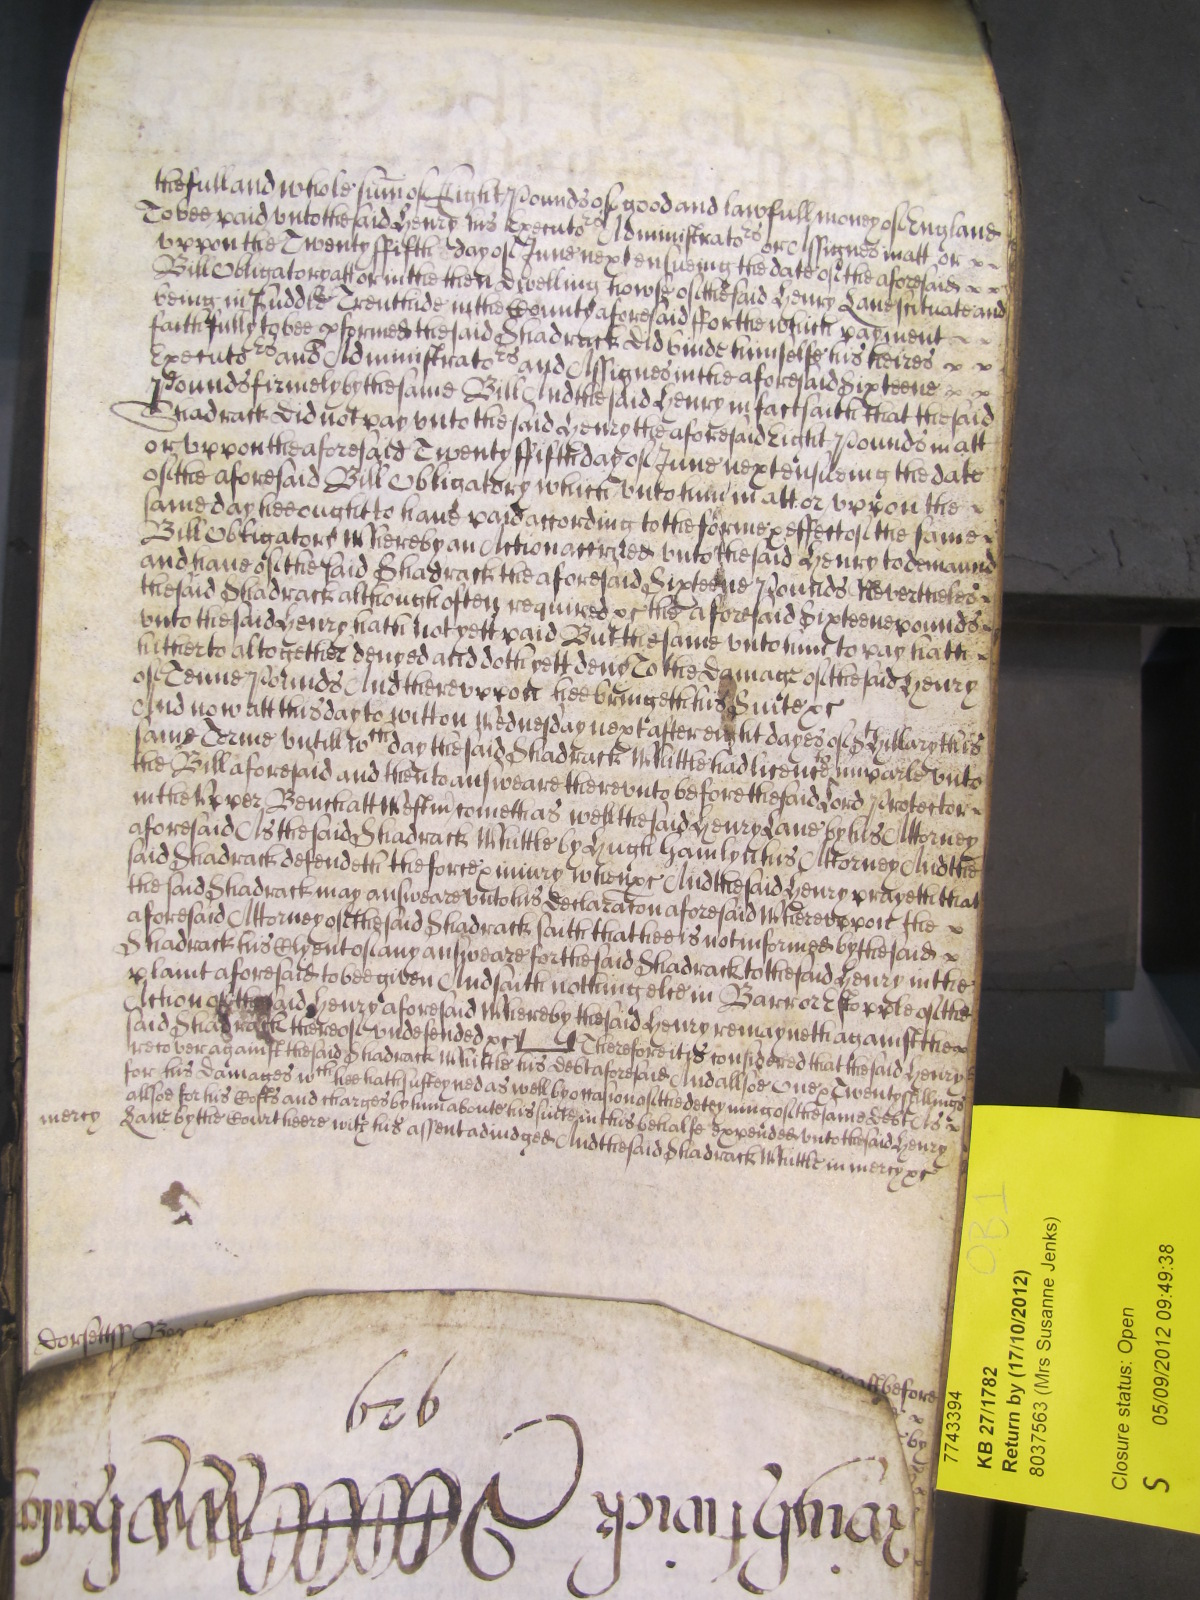 the full and whole sum̄ of Eight Pounds of good and lawfull money of England
To bee paid vnto the said Henry his Executors Administrators or Assignes in att or
vppon the Twenty ffifth day of June next ensueing the date of the aforesaid
Bill Obligatory att or in the then dwelling howse of the said Henry Lane scituate and
being in Puddle Trenthide in the County aforesaid ffor the which payment
faithfully to bee pformed the said Shadrack did binde himselfe his heires
Executors and Administrators and Assignes in the aforesaid Sixteene
Pounds firmely by the same Bill And the said Henry in fact saith that the said
Shadrack did not pay vnto the said Henry the aforesaid Eight Pounds in att
or vppon the aforesaid Twenty ffifth day of June next ensueing the date
of the aforesaid Bill Obligatory which vnto him in att or vppon the
same day hee ought to haue paid according to the forme & effect of the same
Bill Obligatory Whereby an Action accrued vnto the said Henry to demaund
and haue of the said Shadrack the aforesaid Sixteene Pounds Neverthelesse
the said Shadrack although often required &c the aforesaid Sixteene pounds
vnto the said Henry hath not yett paid But the same vnto him to pay hath
hitherto altogether denyed and doth yett deny To the Damage of the said Henry
of Tenne Pounds And therevppon hee bringeth his Suite &c
And now att this day to witt on Wednesday next after eight dayes of St Hillary this
same Terme vntill wch day the said Shadrack Whittle had licence to imparle vnto
the Bill aforesaid and then to answeare therevnto before the said Lord Protector
in the Vpper Bench att Westm̄ cometh as well the said Henry Lane by his Attorney
aforesaid As the said Shadrack Whittle by Hugh Hamlyn his Attorney And the
said Shadrack defendeth the force & iniury when &c And the said Henry prayeth that
the said Shadrack may answeare vnto his Declaraton aforesaid Wherevppon the
aforesaid Attorney of the said Shadrack saith that hee is not informed by the said
Shadrack his Clyent of any answeare for the said Shadrack to the said Henry in the
plaint aforesaid to bee given And saith nothing else in Barr or to ple of the
Action of the said Henry aforesaid Whereby the said Henry remayneth against the
said Shadrack thereof vndefended &c Therefore it is considered that the said Henry
recover against the said Shadrack Whittle his debt aforesaid And allsoe One & Twenty shillings
for his damages wch hee hath susteyned as well by occasion of the deteyning of the same debt As
allsoe for his Costs and charges by him aboute his suite in this behalfe expended vnto the said Henry
mercy Lane by the Court heere with his assent adiudged And the said Shadrack Whittle in mercy &c
dorsett ss
before
by
929
7743394
KB 27/1782
Return by (17/10/2012)
8037563 (Mrs Susanne Jenks)
OB1
Closure status: Open
05/09/2012 09:49:38
S